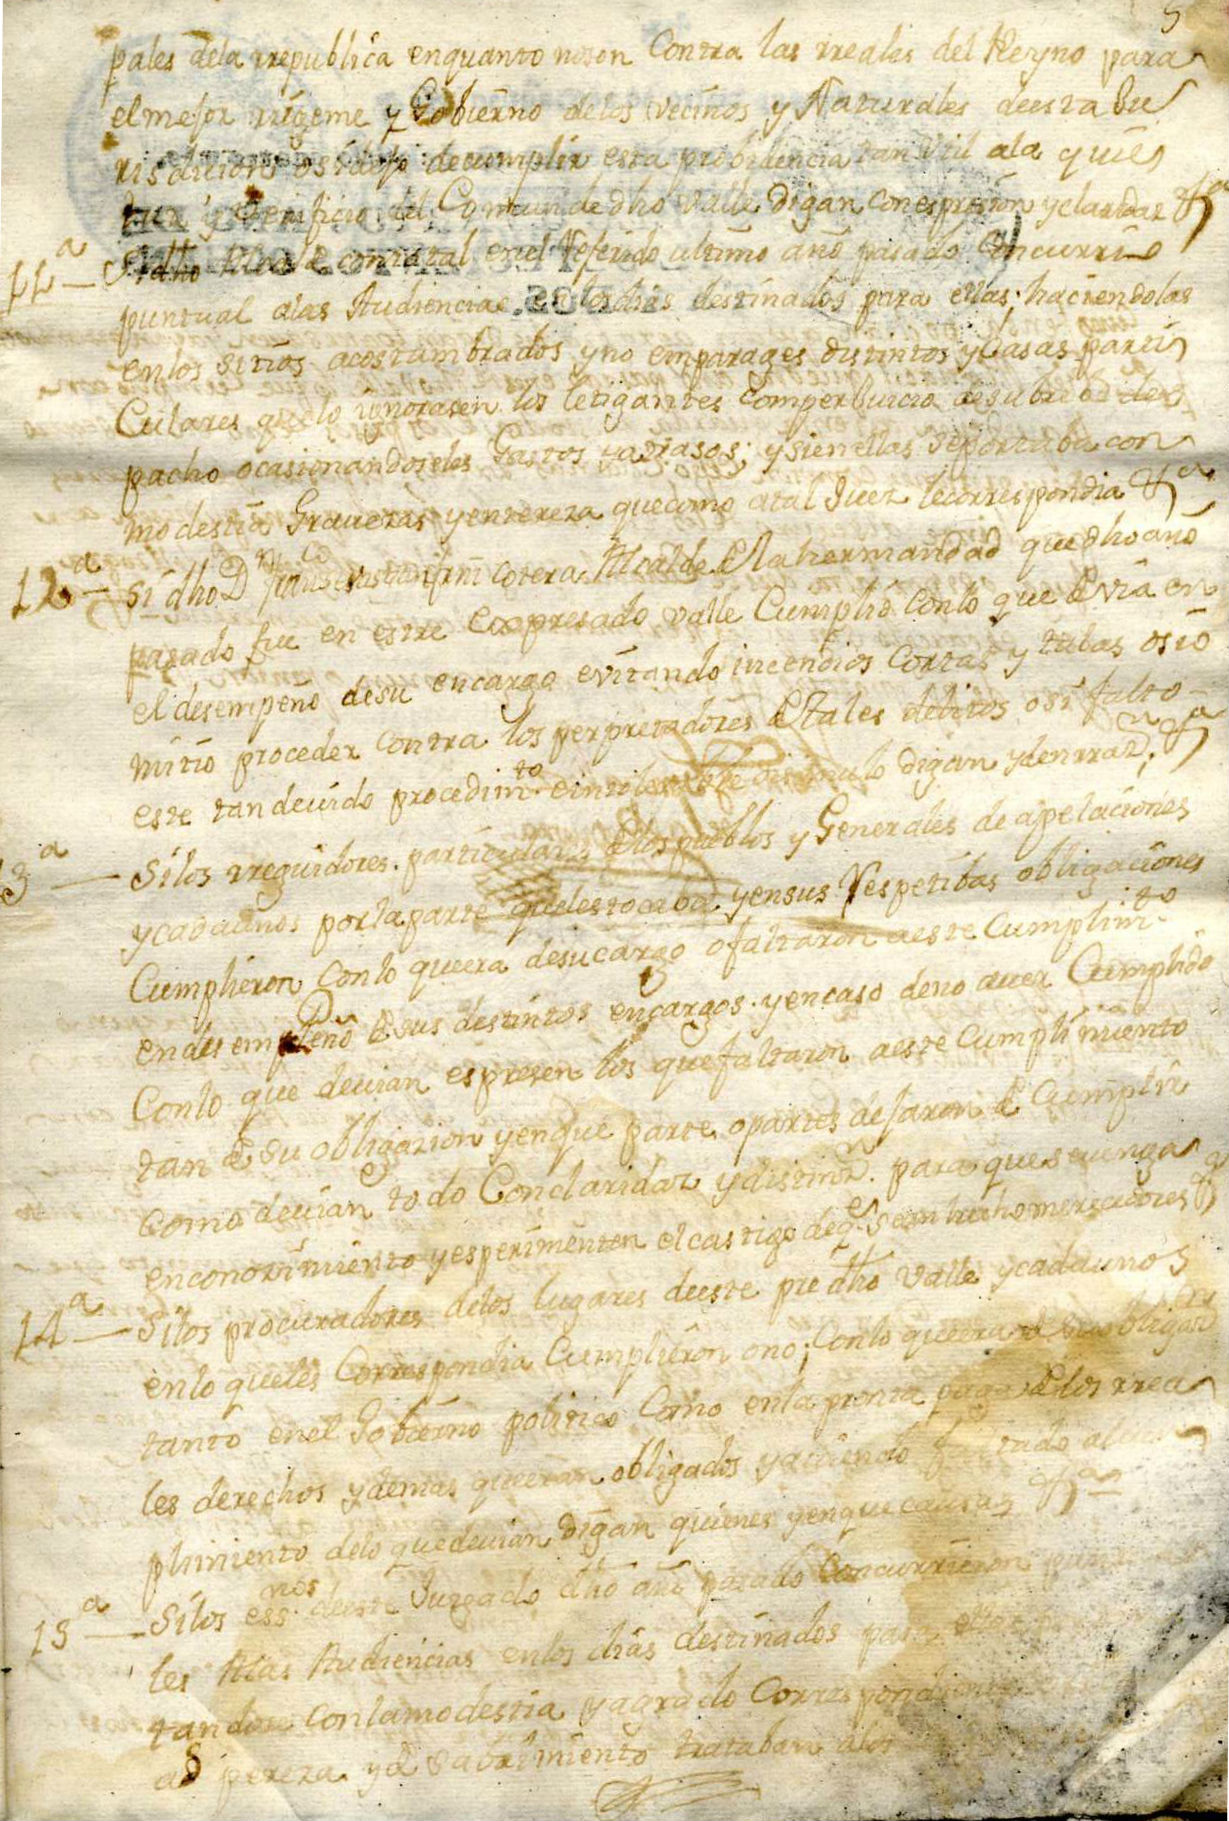 5
pales dela rrepublica enquanto noson Contra las rreales del Reyno para
el mejor rrigeme y Gobierno delos vecinos y Naturales deesta Ju
risdicion osidejo decumplir esta probidencia tan Util ala quie
tux y Venificio del Comun de dho valle digan conespresion yclaridaz &ª
11ª — Sidho Alcalde como tal enel Referido ultimo año pasado Concurrio
puntual alas Audiencias enlosdias destinados para ellas; haciendolas
enlos sitios acostumbrados yno emparages distintos yCasas parti
Culares quelo ignorasen los letigantes Comperbuicio desubre des
pacho ocasionandoseles Gastos yatrasos; ysienellas seportaba con
modestia Gravezas yentereza quecomo atal Juez lecorrespondia &ª
12ª — Si dho Dn Franco cotera Alcalde Dla hermandad que dho año
pasado fue en estte Expresado valle Cumplio Conlo que Devia en
el desempeño desu encargo evitando incendios Cortas y talas osio
mitio proceder contra los perpretadores Dtales delitos osi falto
este tandevido procedimto eintolerable disimulo digan ydenrrazn &ª
13ª — Silos rregidores particulares Delospueblos y Generales de apelaciones
ycadaunos porlaparte quelestocaba yensus Respetibas obligaciones
Cumplieron Conlo queera desucargo ofaltaron aeste Cumplimto
endesempeño Dsus destintos encargos yencaso deno aver Cumplido
Conlo que devian espresen los quefaltaron aeste Cumplimiento
tan D su obligazion yenque parte opartes dejaron D Cumplir
como devian todo Conclaridaz ydistinn para que sevenga
enconozimiento yesperimenten elcastigo deqe Sean hechomerezedores &ª
14ª — Silos procuradores delos lugares deeste pre dho valle ycadaunos
enlo queles Correspondia Cumplieron ono; Conlo queera de suobligazn
tanto enel Gobierno politico Como enla pronta paga Delos rrea
les derechos ydemas queeran obligados yaviendo faltado alcum
plimiento delo quedevian Digan quienes yenquecausas &ª
15ª — Silos essnos deeste Juzgado dho año pasado Concurrieron puntua
les Alas Audiencias enlos dias destinados para ellas
tandose conlamodestia yagrado Correspondiente
as pereza yd sabrimiento trataban alos